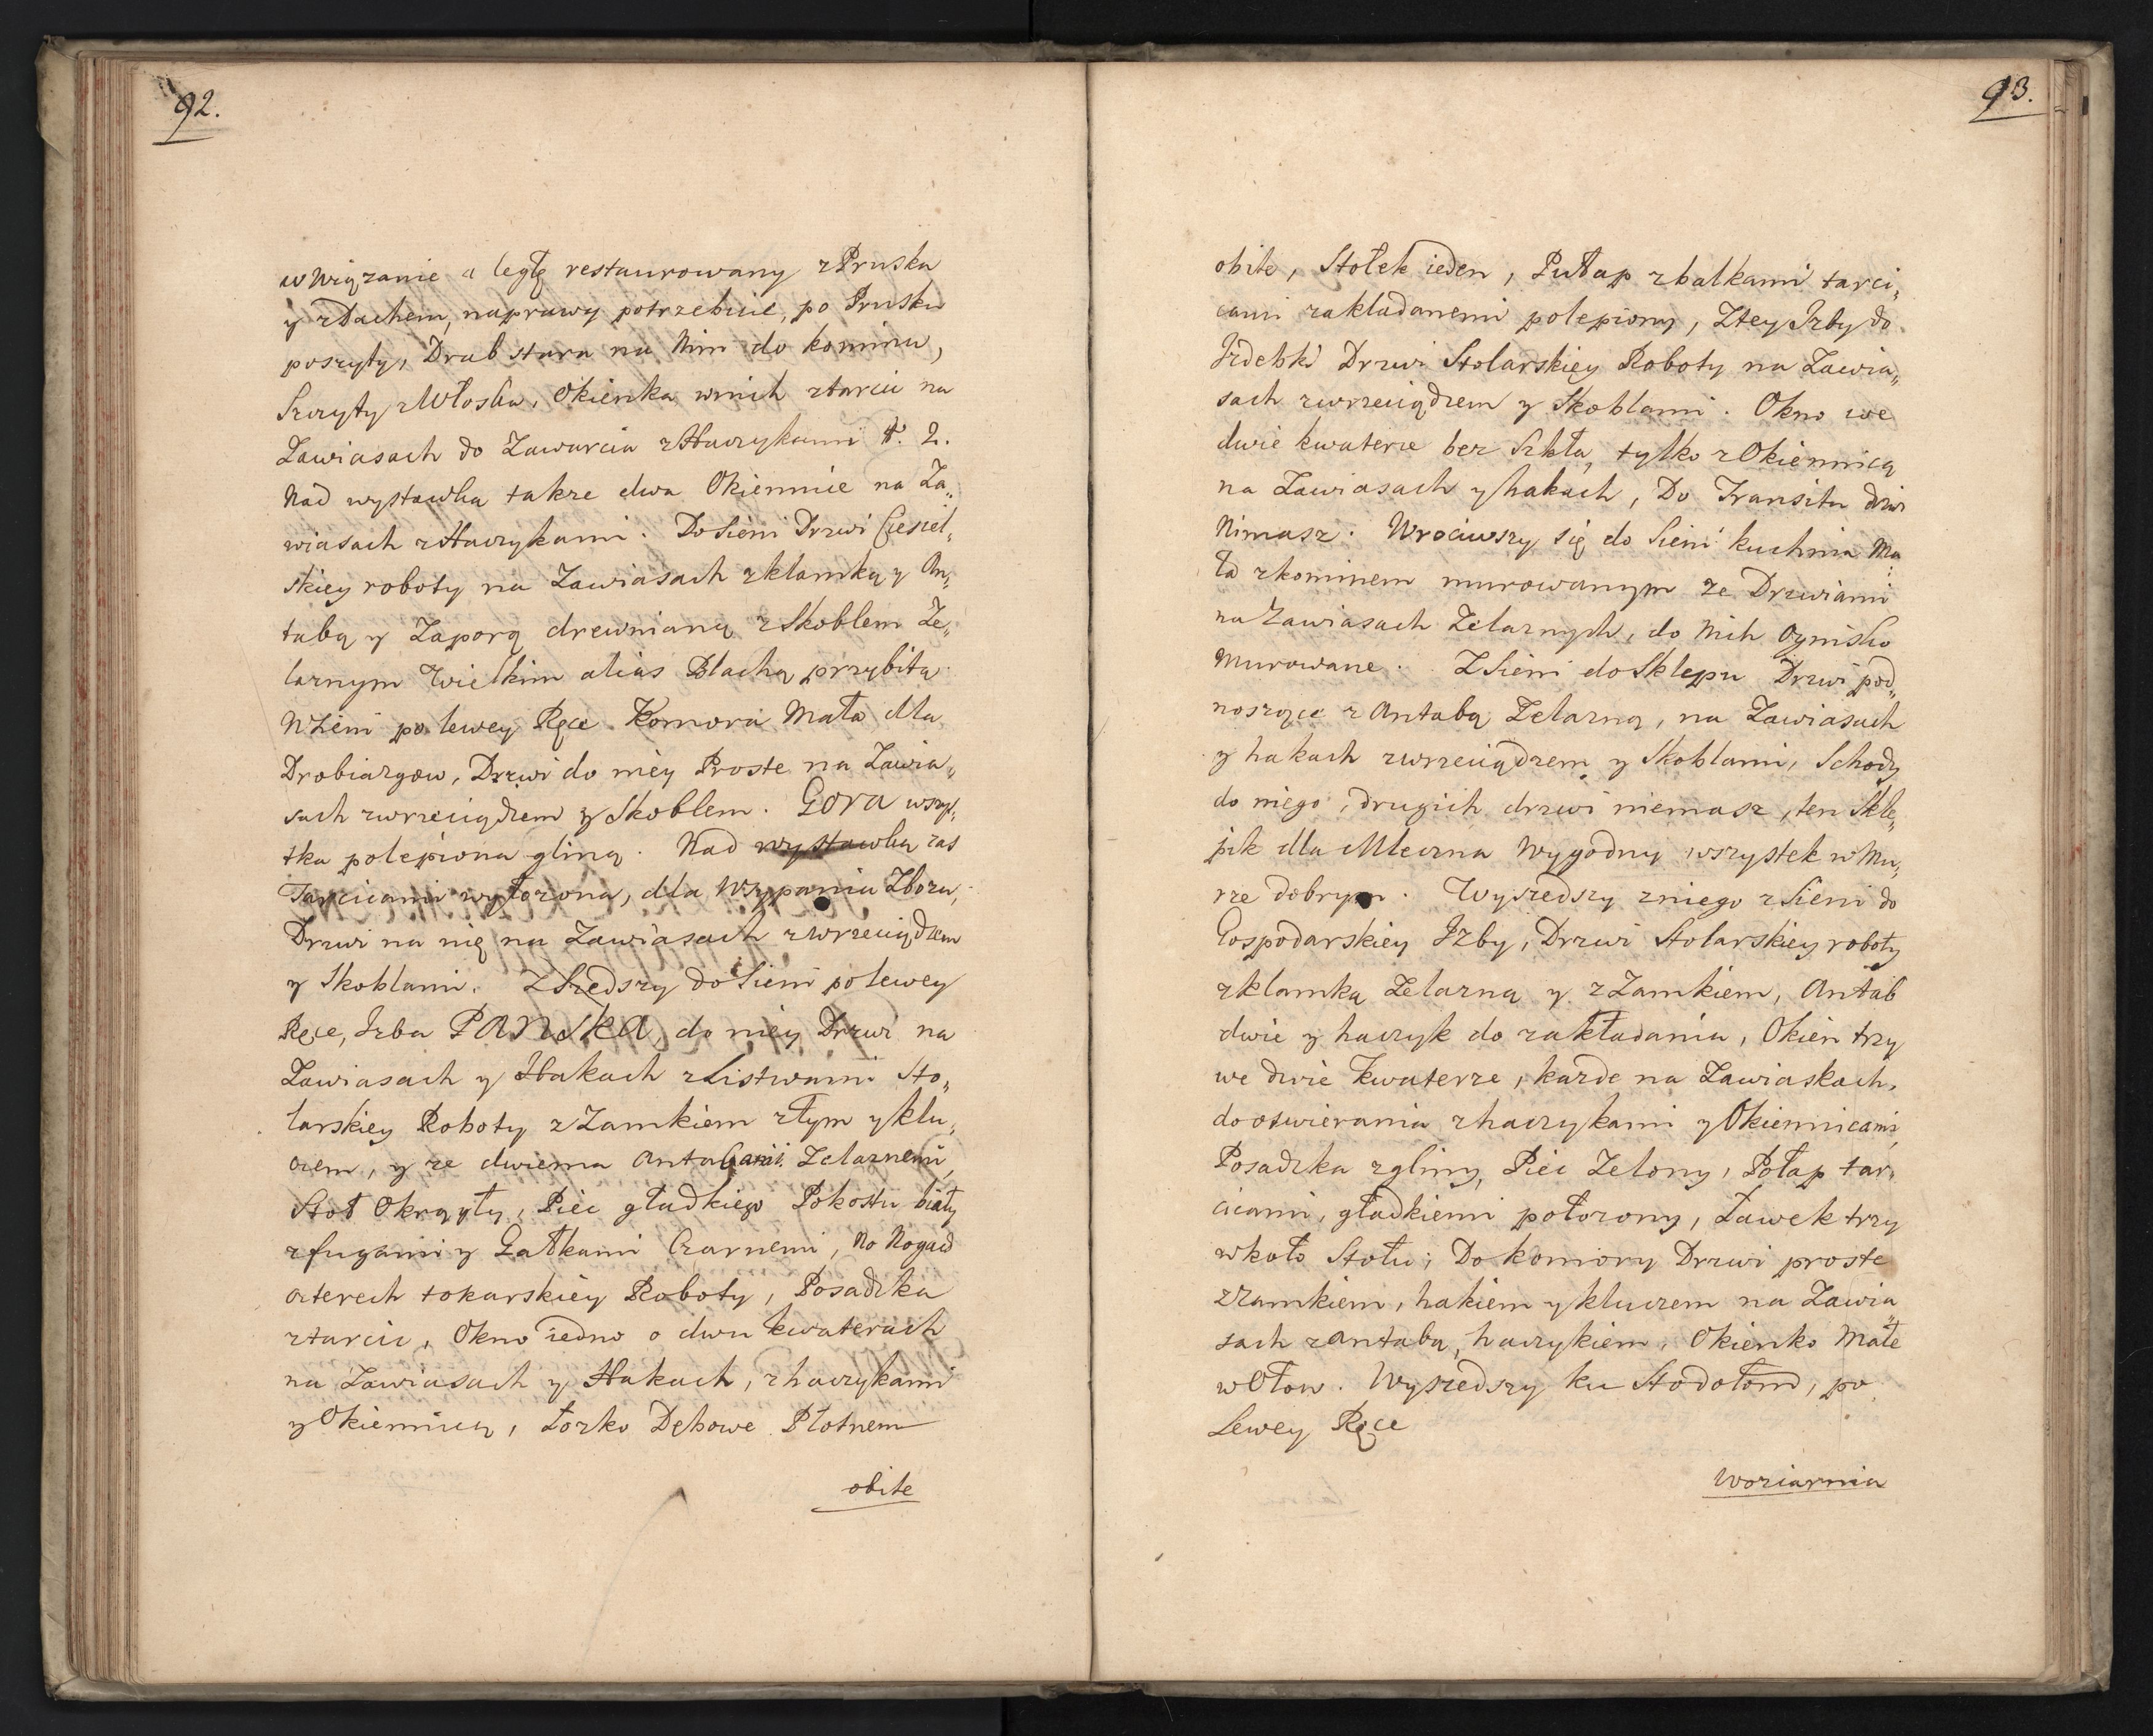 92.
w Wiązanie a ległę restaurowany z Pruska
y z Dachem, naprawy potrzebuie, po Prusku
poszyty, Drab stara na Nim do komina,
Szczyty z Włoska, Okienka wnich ztarcic na
Zawiasach do Zawarcia z Haczykami N. 2.
Nad wystawką takze dwa Okiennice na Za„
wiasach z Haczykami. Do Sieni Drzwi Ciesiel„
skiey roboty na Zawiasach z klamką y An„
tabą y Zaporą drewnianą z Skoblem Że„
laznym Wielkim alias Blachą przybitą
WSieni po lewey Ręce Komora Mała dla
Drobiazgow, Drzwi do niey Proste na Zawia„
sach zwrzeciądzem y Skoblem. Gora wszy„
tka polepiona gliną. Nad wystawką zas
Tarcicami wyłozona, dla Wsypania Zboza,
Drzwi na nię na Zawiasach z wrzeciądzem
y Skoblami. Zszedszy do Sieni po lewey
Ręce, Izba PANSKA, do niey Drzwi na
Zawiasach y Hakach z Listwami Sto„
larskiey Roboty z Zamkiem złym y klu„
czem, y ze dwiema Antabami Zelaznemi,
Stoł Okrągły, Piec gładkiego Pokostu biały
z fugami y Gałkami Czarnemi, No Nogach
czterech tokarskiey Roboty, Posadzka
ztarcic, Okno iedno o dwu kwaterach
na Zawiasach y Hakach, z haczykami
y Okiennicą, Łozko Dębowe Płotnem
obite
93.
obite, Stołek ieden, Pułap z balkami tarci„
cami zakladanemi polepiony, Ztey Izby do
Izdebki Drzwi Stolarskiey Roboty na Zawia„
sach zwrzeciądzem y Skoblami. Okno we
dwie kwaterze bez Szkła, tylko z Okiennicą
na Zawiasach y hakach, Do Transitu drzwi
Nimasz. Wrociwszy się do Sieni kuchnia Ma„
ła z kominem murowanym ze Drzwiami
na Zawiasach Zelaznych, do Nich Ognisko
Murowane. ZSieni do Sklepu Drzwi pod„
noszące z Antabą Zelazną, na Zawiasach
y hakach zwrzeciądzem y Skoblami, Schody
do niego, drugich drzwi niemasz, ten Skle„
pik dla Mleczna Wygodny wszystek w Mu„
rze dobrym. Wyszedszy zniego z Sieni do
Gospodarskiey Izby, Drzwi Stolarskiey roboty
z klamką Zelazną y z Zamkiem, Antab
dwie y haczyk do zakładania, Okien trzy
we dwie kwaterze, kazde na Zawiaskach,
do otwierania z haczykami y Okiennicami,
Posadzka z gliny, Piec Zelony, Połap tar„
cicami, gładkiemi połozony, Ławek trzy
wkoło Stołu; Do komory Drzwi proste
z zamkiem, hakiem y kluczem na Zawia„
sach z antabą, haczykiem, Okienko Małe
w Ołow. Wyszedszy ku Stodołom, po
Lewey Ręce
Woziarnia